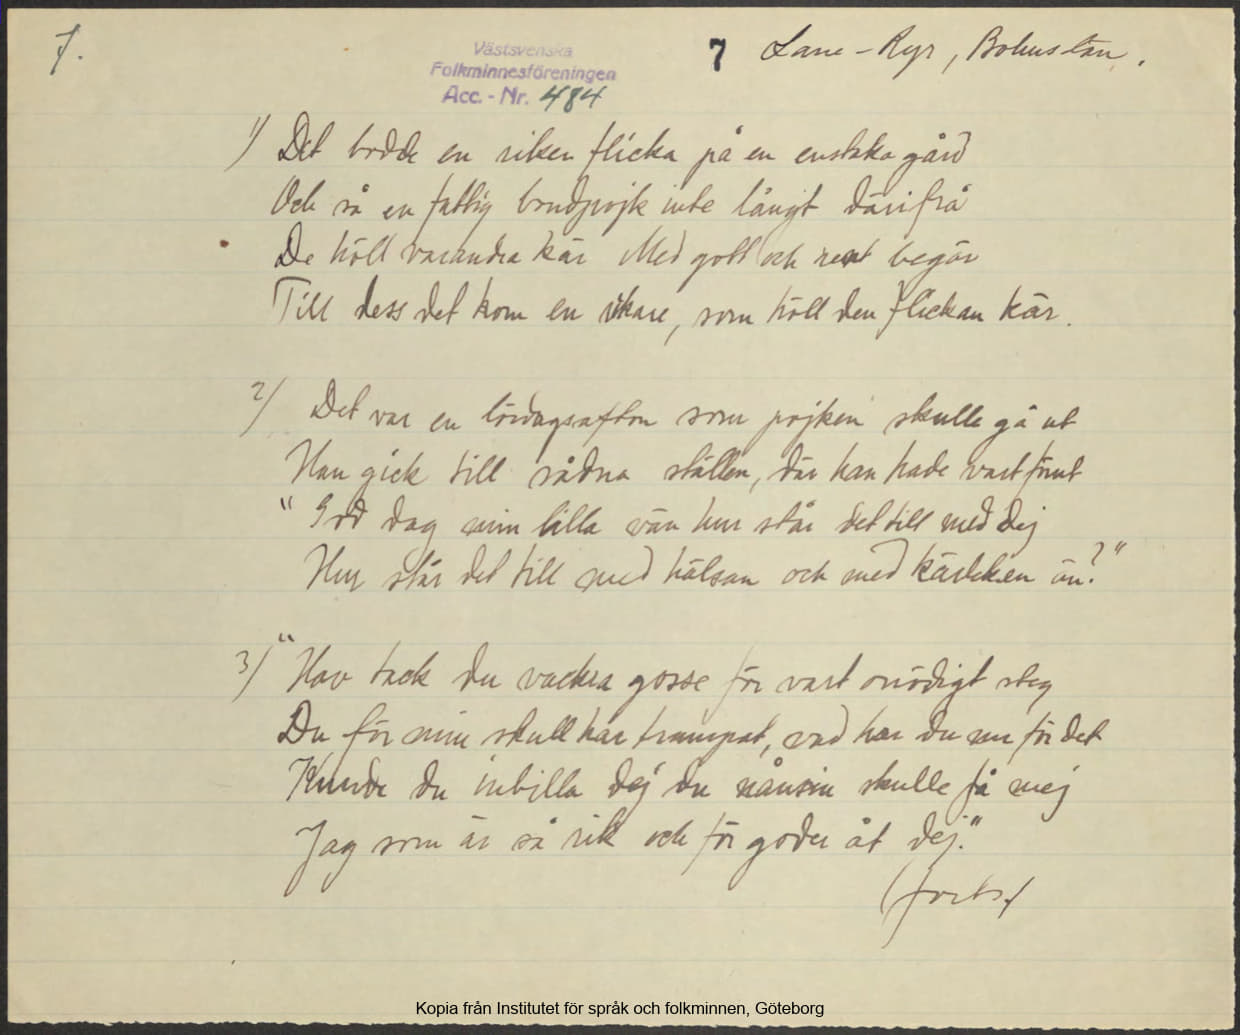 7.
Västsvenska
Folkminnesföreningen
Acc. - Nr. 484
7 Lane-Ryr, Bohuslän.
1) Det bodde en riken flicka på en enslika gård
Och så en fattig bondpojk inte långt därifrå
De höll varandra kär Med gott och rent begär
Till dess det kom en rikare, som höll den flickan kär.
2) Det var en lördagsafton som pojken skulle gå ut
Han gick till sådna ställen, där han hade vart förut
"God dag min lilla vän hur står det till med dej
Hur står det till med hälsan och med kärleken än?"
3) "Hav tack du vackra gosse för vart onödigt steg
Du för min skull har trampat, vad har du nu för det
Kunde du inbilla dej du nånsin skulle få mej
Jag som är så rik och för goder åt dej."
(forts.)
Kopia från Institutet för språk och folkminnen, Göteborg